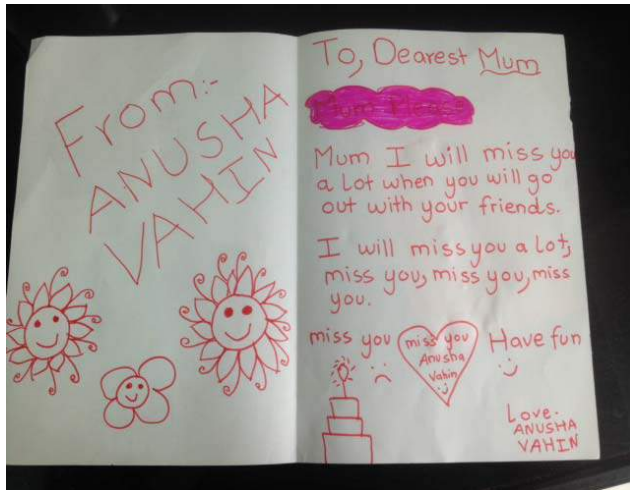 From:-
ANUSHA
VAHIN
To, Dearest Mum
Mum Please
Mum I will miss you
a lot when you will go
out with your friends.
I will miss you a lot,
miss you, miss you, miss
you.
miss you
miss you
Anusha
Vahin
Have fun
Love.
ANUSHA
VAHIN